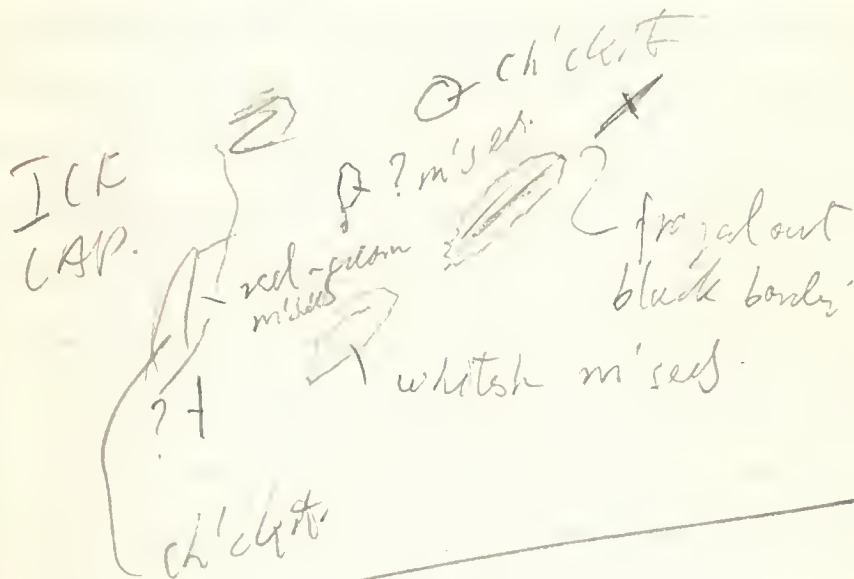 ch'ckit
ICE
CAP.
? m'sed.
red-green
m'seds
out
black border
whitish m'seds.
?
ch'ckit.